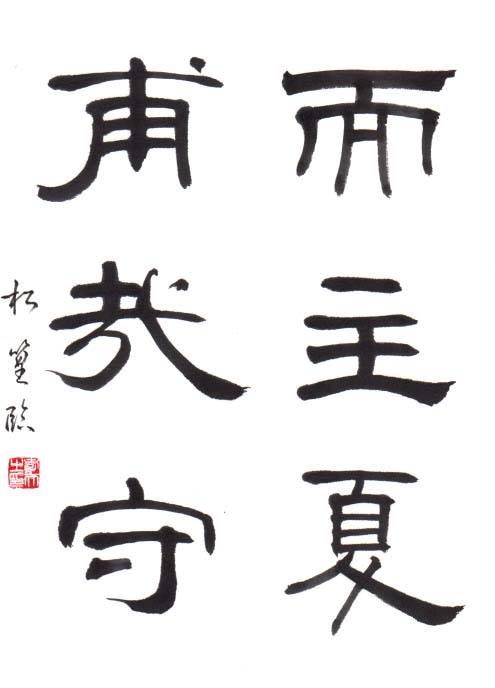 而主夏
甫
守
松篁臨